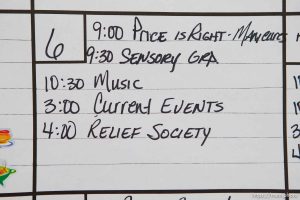 6
9:00 Price is Right - Manicure
9:30 Sensory Grp
10:30 Music
3:00 Current Events
4:00 Relief Society